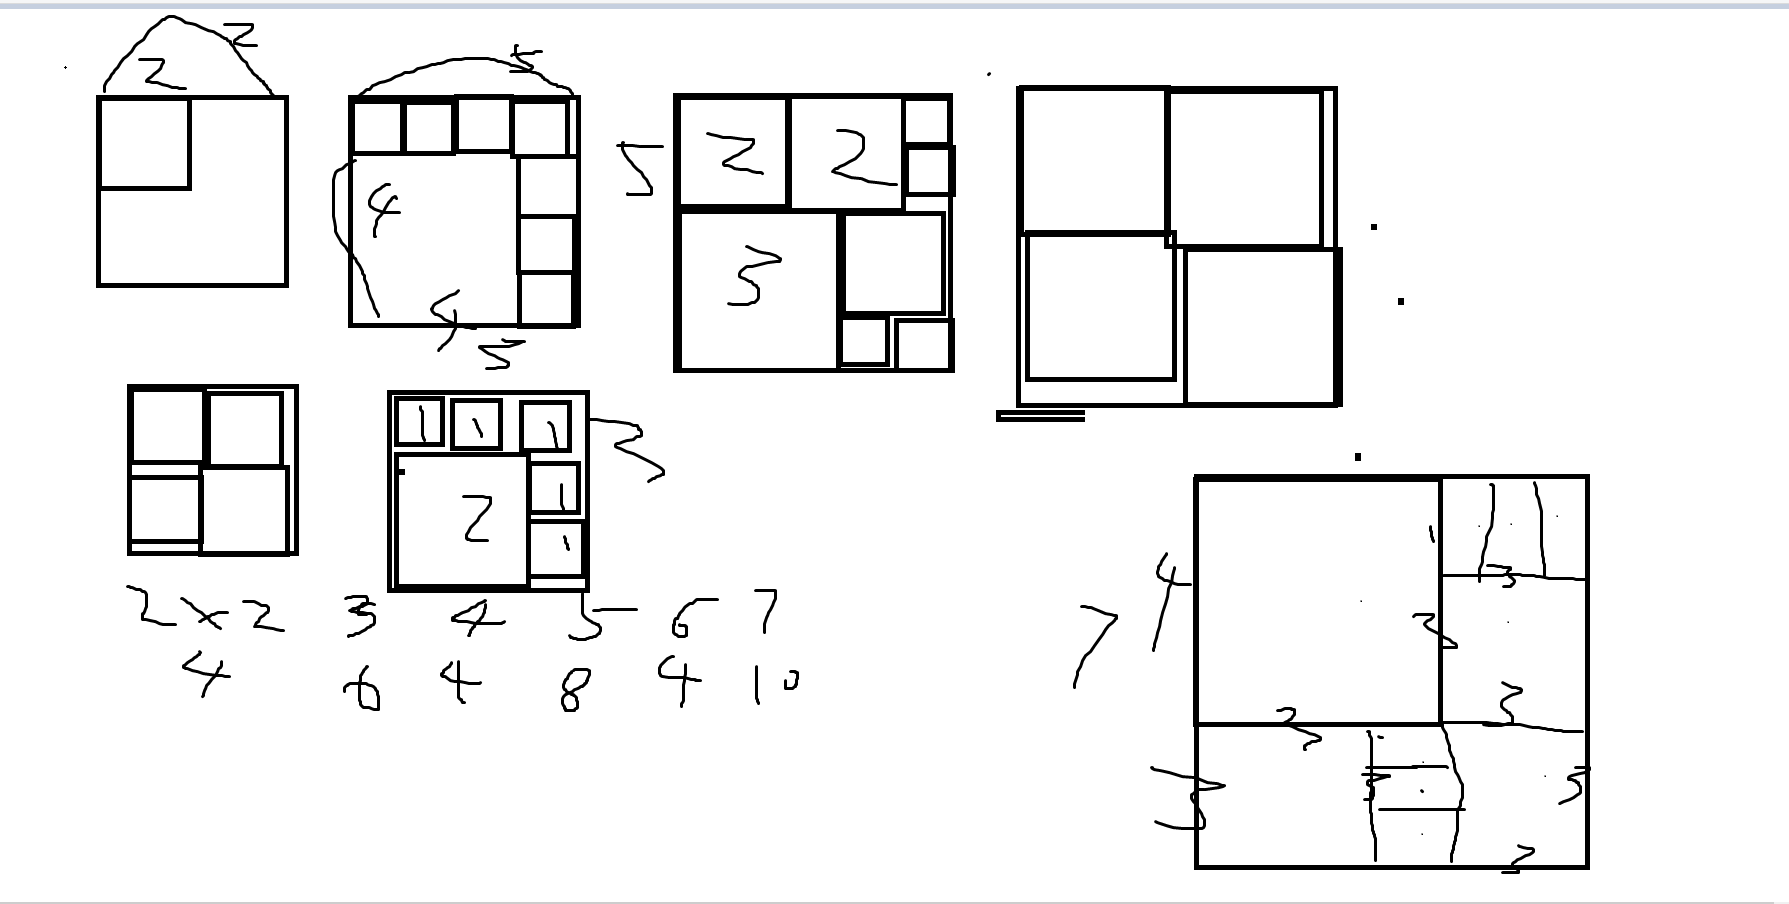 2
2
5
4
4
5
5
2
2
3
1 1 1
1
2
1
3
2x2 3 4 5 6 7
4 6 4 8 4 10
7
4
1
3
3
3
3
3
3
3
3